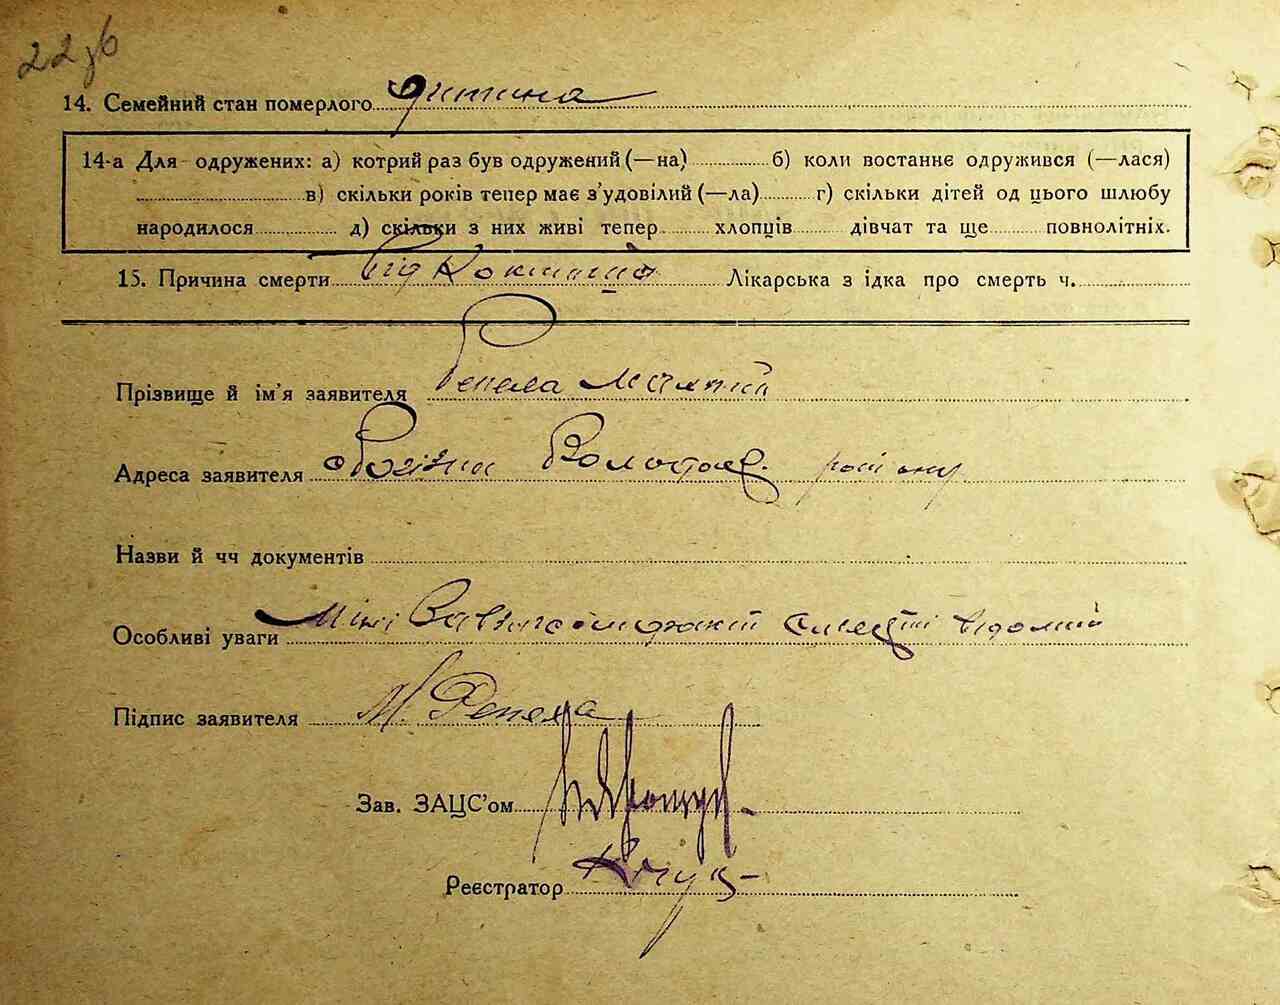 22зв
14. Семейний стан померлого дитина
14-а Для одружених: а) котрий раз був одружений (—на) б) коли востаннє одружився (—лася)
в) скільки років тепер має з'удовілий (—ла) г) скільки дітей од цього шлюбу
народилося д) скільки з них живі тепер хлопців дівчат та ще повнолітніх.
15. Причина смерти від Коклюша Лікарська з ідка про смерть ч.
Прізвище й ім'я заявителя Репела
Адреса заявителя району
Назви й чч документів
Особливі уваги мені відомий
Підпис заявителя М. Репела
Зав. ЗАЦС'ом
Реєстратор